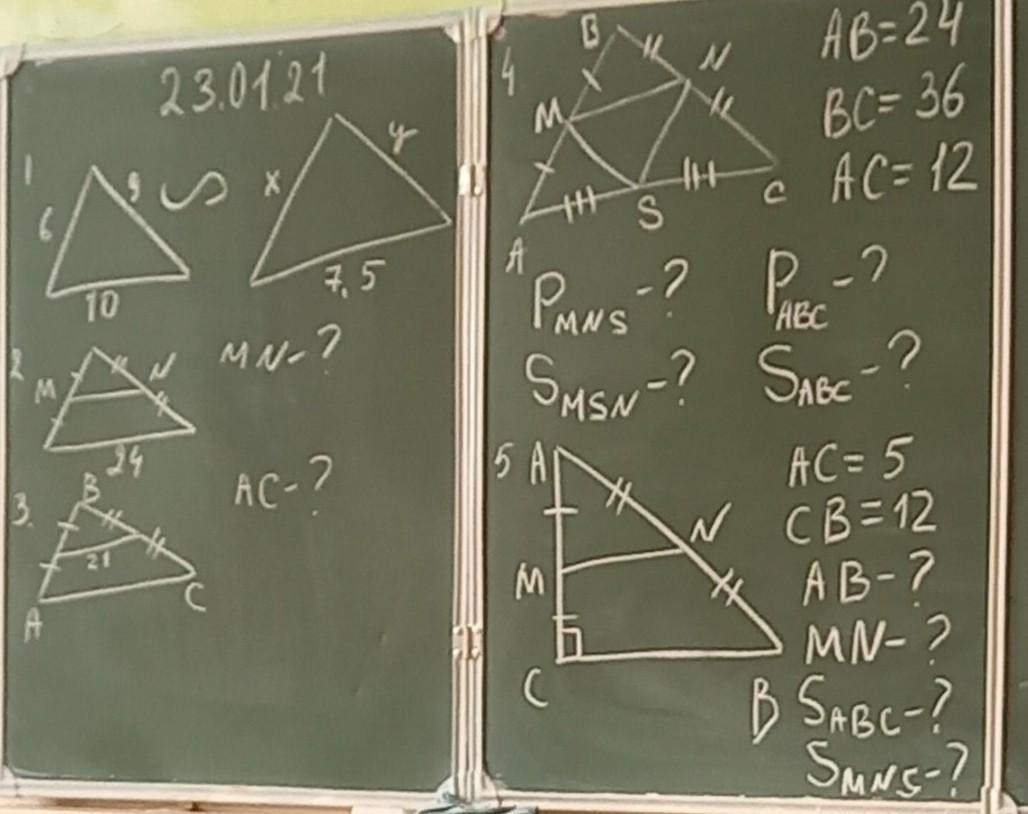 23.01.21
1
6
9
∽
x
y
10
7,5
2
M
N
24
MN-?
3.
B
21
A
C
AC-?
4
B
N
M
S
C
A
AB=24
BC=36
AC=12
P MNS -?
P ABC -?
S MSN -?
S ABC -?
5
A
N
M
C
B
AC=5
CB=12
AB-?
MN-?
S ABC -?
S MNS -?